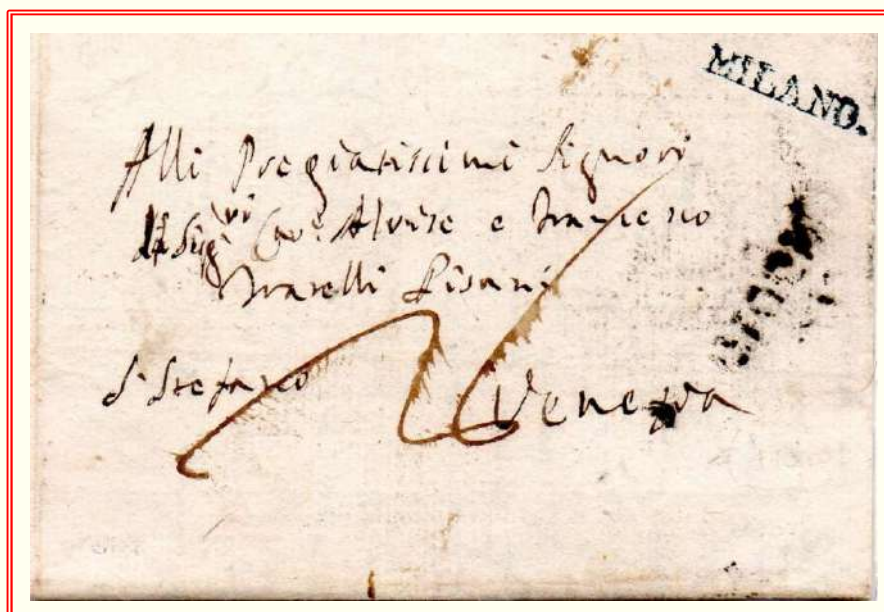 MILANO.
Alli Pregiatissimi Signori
Sig.ri Alvise e Francesco
Fratelli Pisani
S. Stefano
Venezia